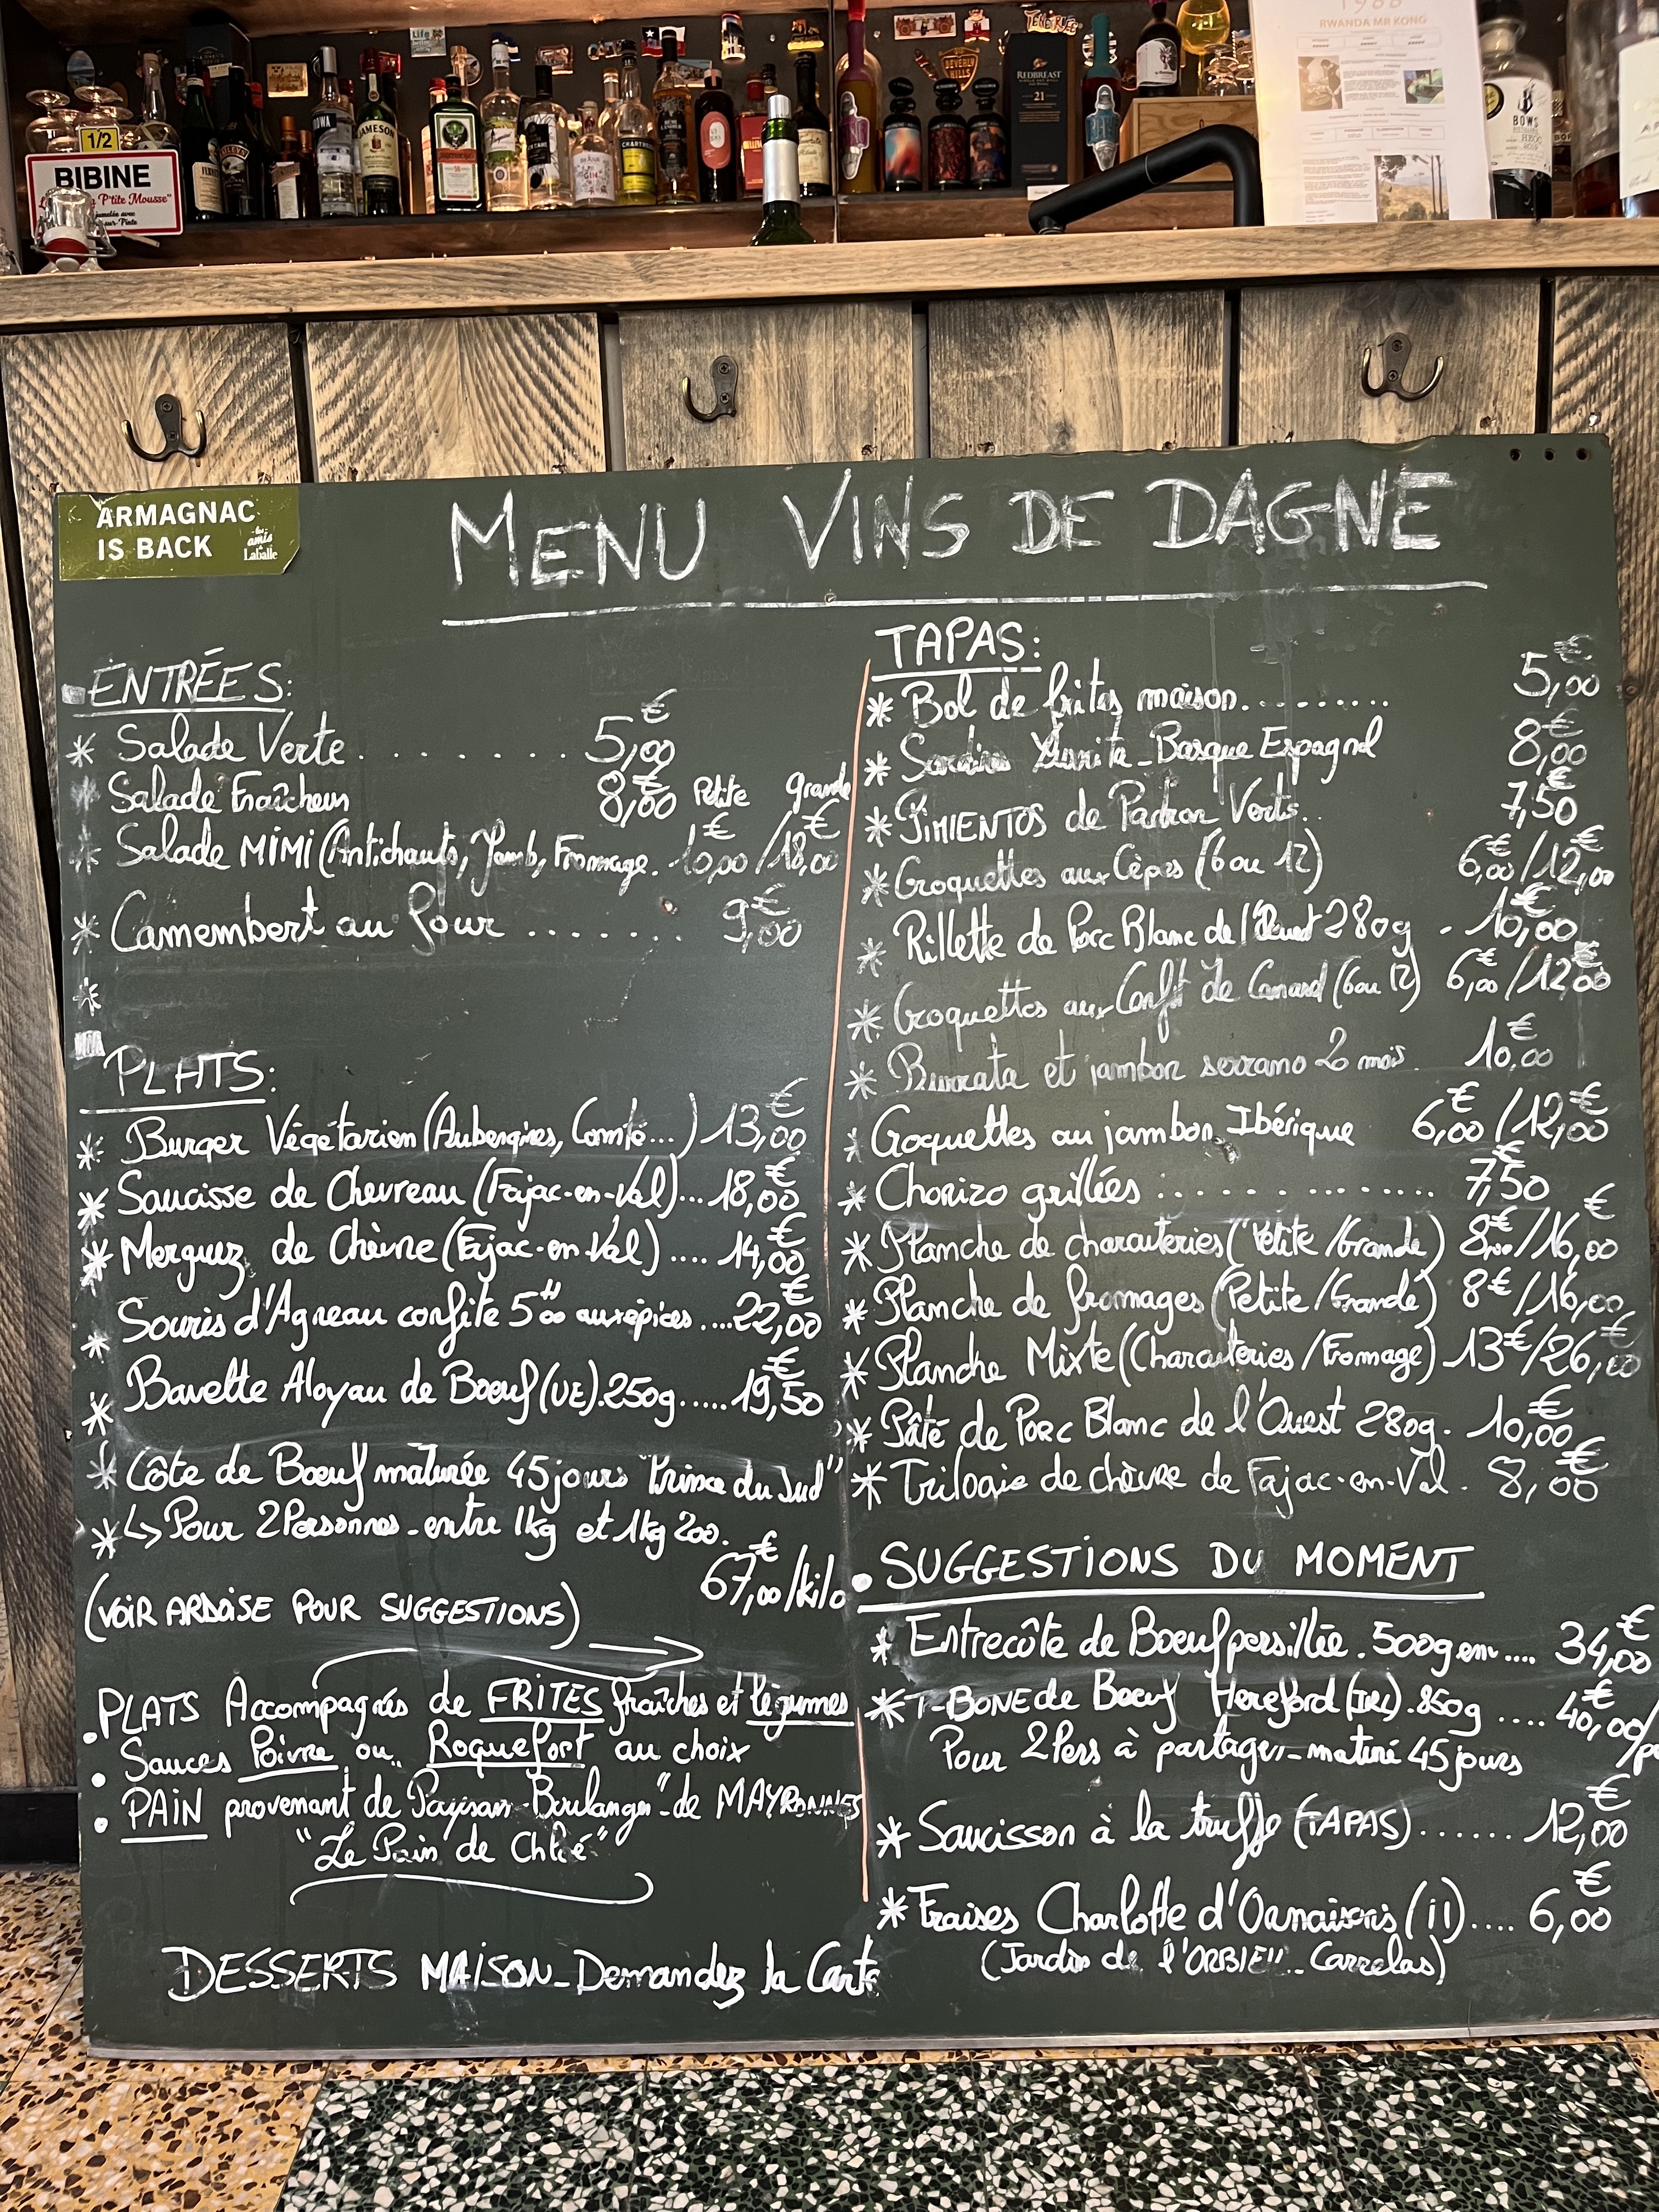 1988
RWANDA MR KONG
BEVERLY HILLS
REDBREAST
21
JAMESON
1/2
BIBINE
P'tite Mousse"
BOWS
ARMAGNAC
IS BACK
les amis
Laballe
MENU VINS DE DAGNE
ENTRÉES:
* Salade Verte........5,00€
* Salade Fraîcheur 8,00€ Petite grande
* Salade MIMI (Antichauts, Jamb, Fromage. 10,00€/18,00€
* Camembert au four....... 9,00€
*
PLATS:
* Burger Végétarien (Aubergines, Comté...) 13,00€
* Saucisse de Chevreau (Fajac-en-Val)... 18,00€
* Merguez de Chèvre (Fajac-en Val).... 14,00€
* Souris d'Agneau confite aux épices....22,00€
* Bavette Aloyau de Boeuf (UE).250g.....19,50€
* Côte de Boeuf maturée 45 jours "Prince du Sud"
* ↳ Pour 2 Personnes - entre 1kg et 1kg 200.
67,00€/kilo
(VOIR ARDOISE POUR SUGGESTIONS)
• PLATS Accompagnés de FRITES fraîches et légumes
• Sauces Poivre ou Roquefort au choix
• PAIN provenant de Paysan-Boulanger"-de MAYRONNES
"Le Pain de Chloé"
DESSERTS MAISON-Demandez la Carte
TAPAS:
* Bol de frites maison......... 5,00€
* Basque Espagnol 8,00€
* PIMIENTOS de Padron Verts.. 7,50€
* Croquettes aux Cèpes (6 ou 12) 6,00€/12,00€
* Rillette de Porc Blanc de l'Ouest 280g - 10,00€
* Croquettes aux Confit de Canard (6 ou 12) 6,00€/12,00€
* Burrata et jambon serrano 20 mois. 10,00€
* Croquettes au jambon Ibérique 6,00€/12,00€
* Chorizo grillées ............... 7,50€
* Planche de charcuteries (Petite/Grande) 8,00€/16,00€
* Planche de fromages (Petite/Grande) 8€/16,00
* Planche Mixte (Charcuteries/Fromage) 13€/26,00€
* Pâté de Porc Blanc de l'Ouest 280g. 10,00€
* Trilogie de chèvre de Fajac-en-Val. 8,00€
• SUGGESTIONS DU MOMENT
* Entrecôte de Boeuf persillée. 500g env.... 34,00€
* T-BONE de Boeuf Hereford (IRL).850g .... 40,00€/
Pour 2 Pers à partager - maturé 45 jours
* Saucisson à la truffe (TAPAS)...... 12,00€
* Fraises Charlotte d'Ornaisons (11).... 6,00€
(Jardin de l'ORBIEU - Carrelas)